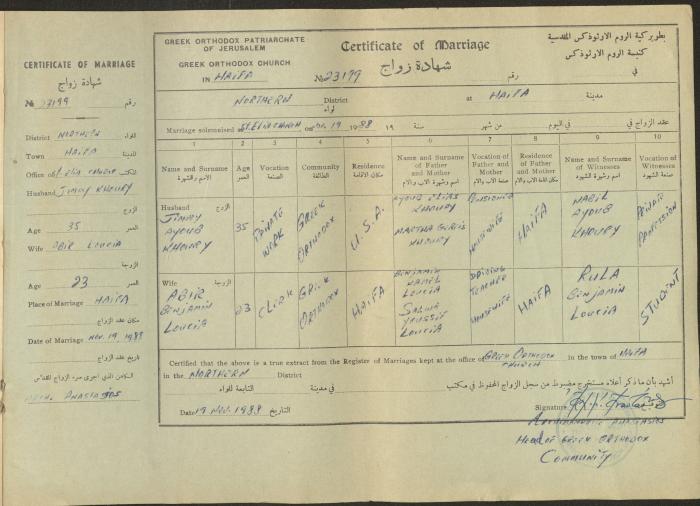 CERTIFICATE OF MARRIAGE
شهادة زواج
№ 23199 رقم
District NORTHERN لواء
Town HAIFA المدينة
Husband Jimmy KHOURY
الزوج
Age 35 العمر
Wife ABIR LOUCIA
الزوجة
Age 23 العمر
Place of Marriage HAIFA
مكان عقد الزواج
Date of Marriage NOV. 19, 1988
تاريخ عقد الزواج
ANASTASIOS
GREEK ORTHODOX PATRIARCHATE
OF JERUSALEM
GREEK ORTHODOX CHURCH
IN HAIFA
Certificate of Marriage
شهادة زواج
№ 23199 رقم
بطريركية الروم الارثوذكس المقدسية
كنيسة الروم الارثوذكس
في
NORTHERN District لواء at HAIFA مدينة
Marriage solemnised on 19 1988 19 سنة من شهر في اليوم عقد الزواج في
1 2 3 4 5 6 7 8 9 10
Name and Surname
الاسم والشهرة
Age
العمر
Vocation
الصنعة
Community
الطائفة
Residence
مكان الاقامة
Name and Surname
of Father
and Mother
اسم وشهرة الاب والام
Vocation of
Father
and Mother
صنعة الاب والام
Residence of
Father
and Mother
مكان اقامة الاب والام
Name and Surname
of
Witnesses
اسم وشهرة الشهود
Vocation of
Witnesses
صنعة الشهود
Husband الزوج
JIMMY
AYOUB
KHOURY
35
PRIVATE
WORK
GREEK
ORTHODOX
U.S.A.
AYOUB ELIAS
KHOURY
MARTHA
KHOURY
PENSIONER
HOUSEWIFE
HAIFA
NABIL
AYOUB
KHOURY
PRIVATE
PROFESSION
Wife الزوجة
ABIR
BENJAMIN
LOUCIA
23
CLERK
GREEK
ORTHODOX
HAIFA
BENJAMIN
LOUCIA
YOUSSIF
LOUCIA
DRIVING
TEACHER
HOUSEWIFE
HAIFA
RULA
BENJAMIN
LOUCIA
STUDENT
Certified that the above is a true extract from the Register of Marriages kept at the office of GREEK ORTHODOX CHURCH in the town of HAIFA
in the NORTHERN District التابعة للواء في مدينة أشهد بأن ما ذكر أعلاه مستخرج مضبوط من سجل الزواج المحفوظ في مكتب
Date 19 NOV. 1988 التاريخ
Signature
ARCHIMANDRITE ANASTASIOS
Head of GREEK ORTHODOX
Community